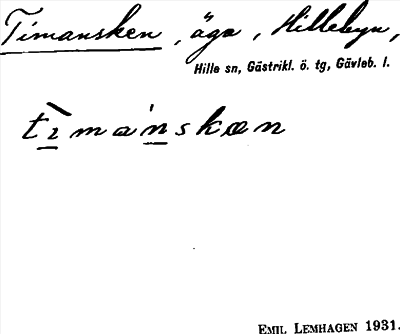 Timansken, äga, Hillebyn,
Hille sn, Gästrikl. ö. tg, Gävleb. l.
tìma'nskæn
EMIL LEMHAGEN 1931.